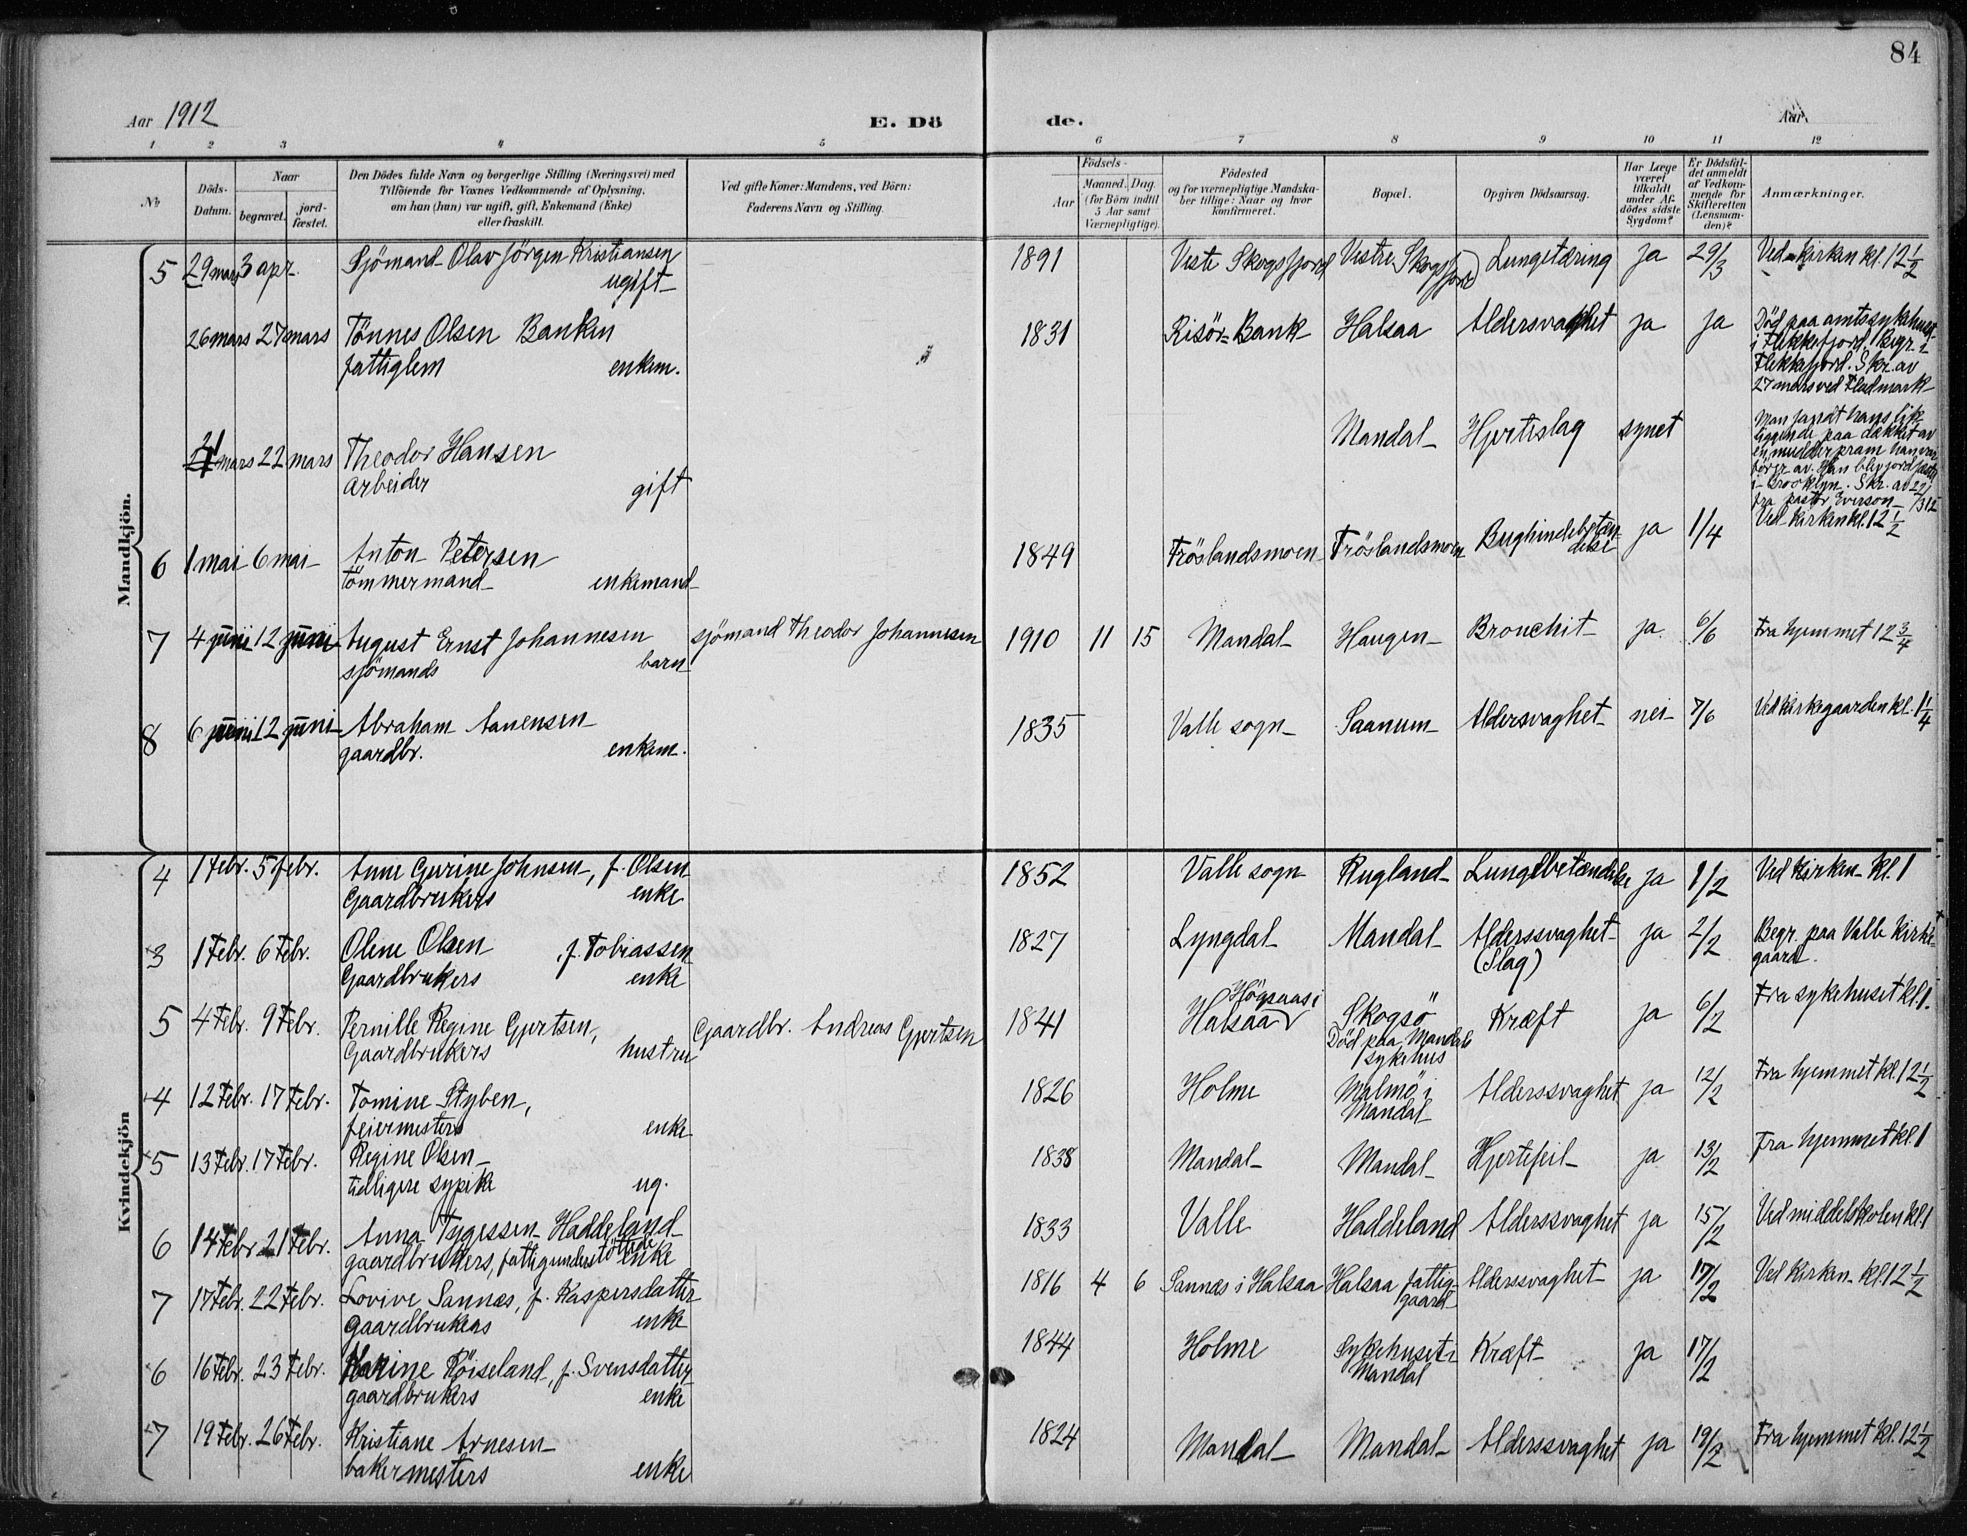 84
Aar 1912
E. Dö
de.
Aar
1 2 3 4 5 6 7 8 9 10 11 12
No
Döds-Datum.
Naar
begravet.
jord-fæstet.
Den Dödes fulde Navn og borgerlige Stilling (Næringsvei) med
Tilföiende for Voxnes Vedkommende af Oplysning,
om han (hun) var ugift, gift, Enkemand (Enke)
eller fraskilt.
Ved gifte Koner: Mandens, ved Börn:
Faderens Navn og Stilling.
Födsels-
Aar
Maaned. Dag
(for Börn indtil
5 Aar samt
Værnepligtige).
Födested
og for værnepligtige Mandska-
ber tillige: Naar og hvor
konfirmeret.
Bopæl.
Opgiven Dödsaarsag.
Har Læge
været
tilkaldt
under Af-
dödes sidste
Sygdom?
Er Dödsfal-
det anmeldt
af Vedkom-
mende for
Skifteretten
(Lensman-
den)?
Anmærkninger.
Mandkjön.
5 29 mars 3 apr. Sjömand Olav Jörgen Kristiansen 1891 Veste Skogsfjord Vestre Skogsfjord Lungetæring ja 29/3 Ved kirken kl. 12 1/2
ugift
26 mars 27 mars Tönnes Olsen Banken 1831 Risör-Bank Halsaa Aldersvaghet ja ja Död paa amtssykehuset
fattiglem enkem. i Flekkefjord. Begr. i
Flekkefjord. Skr. av
27 mars ved Fladmark
21 mars 22 mars Theodor Hansen Mandal Hjerteslag synet Man fandt hans lik
arbeider gift liggende paa dækket av
en mudderpram han var
av. Han blev jordfæstet
i Brooklyn. Skr. av 22/3 12
fra pastor Everson
6 1 mai 6 mai Anton Petersen 1849 Fröslandsmoen Fröslandsmoen Bughindebetændelse ja 1/4 Ved kirken kl. 12 1/2
tömmermand enkemand
7 4 juni 12 juni August Ernst Johannesen sjömand Theodor Johannesen 1910 11 15 Mandal Haugen Bronchit ja 6/6 Fra hjemmet 12 3/4
sjömands barn
8 6 juni 12 juni Abraham Aanensen 1835 Valle sogn Saanum Aldersvaghet nei 7/6 Ved kirkegaarden kl. 1 1/4
gaardbr. enkem.
Kvindekjön
4 1 febr. 5 febr. Anne Gurine Johnsen, f. Olsen 1852 Valle sogn Rugland Lungebetændelse ja 1/2 Ved kirken kl. 1
Gaardbrukers enke
3 1 Febr. 6 Febr. Oline Olsen f. Tobiassen 1827 Lyngdal Mandal Alderssvaghet ja 2/2 Begr. paa Valle kirke-
Gaardbrukers enke (Slag) gaard.
5 4 Febr. 9 Febr. Pernille Regine Gjertsen, Gaardbr. Andreas Gjertsen 1841 Högsaas i Halsaa Skogsö Kræft ja 6/2 Fra sykehuset kl. 1.
Gaardbrukers hustru Död paa Mandals
sykehus
4 12 Febr. 17 Febr. Tomine Styben, 1826 Holme Malmö i Alderssvaghet ja 12/2 Fra hjemmet kl. 12 1/2
feiermesters enke Mandal
5 13 Febr. 17 Febr. Regine Olsen 1838 Mandal Mandal Hjertefeil ja 13/2 Fra hjemmet kl 1
tidligere sypike ug.
6 14 Febr 21 Febr. Anna Tygessen Haddeland 1833 Valle Haddeland Alderssvaghet ja 15/2 Ved middelskolen kl 1
gaardbrukers, fattigunderstöttede enke
7 17 Febr. 22 Febr. Lovive Sannæs, f. Kaspersdatter 1816 4 6 Sannæs i Halsaa Halsaa fattig- Alderssvaghet ja 17/2 Ved kirken kl. 12 1/2
Gaardbrukers enke gaard
6 16 Febr. 23 Febr. Karine Röiseland, f. Svensdatter 1844 Holme Sykehuset i Kræft ja 17/2
gaardbrukers enke Mandal
7 19 Febr. 26 Febr. Kristiane Arnesen 1824 Mandal Mandal Alderssvaghet ja 19/2 Fra hjemmet kl. 12 1/2
bakermesters enke